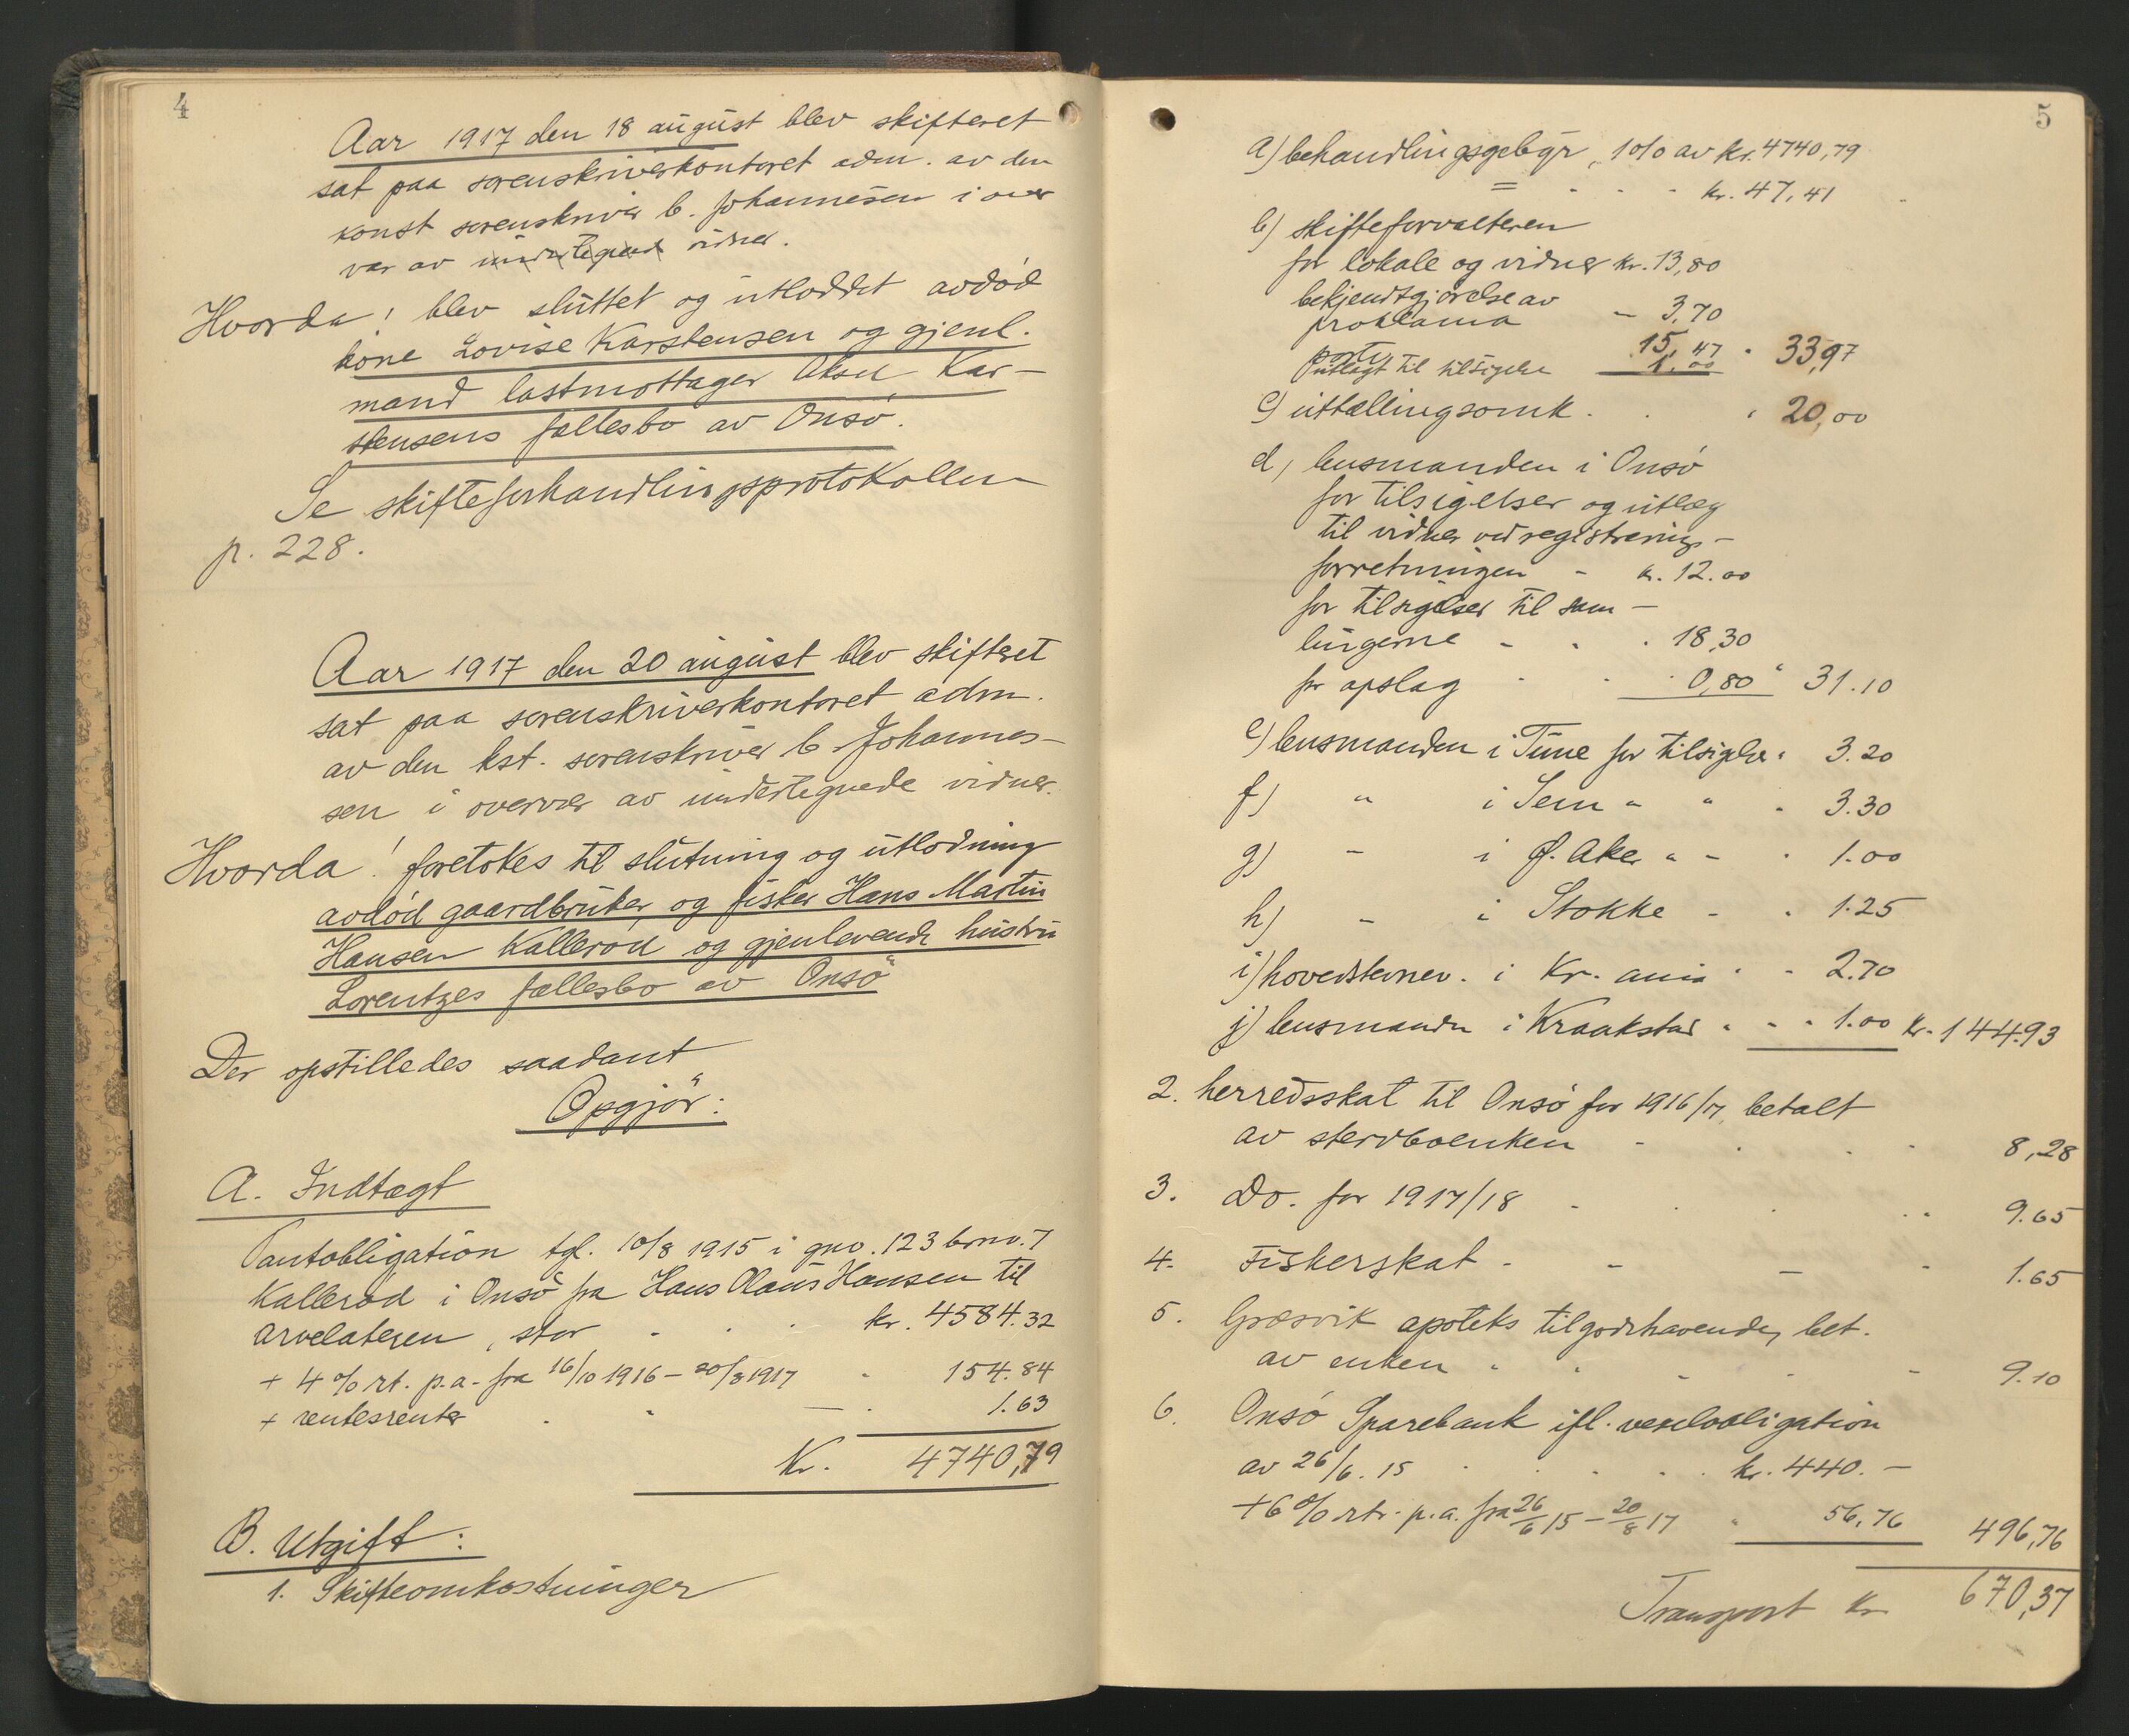 4
Aar 1917 den 18 august blev skifteret
sat paa sorenskriverkontoret adm. av den
konst sorenskriver C. Johannesen i over
vær av undertegned vidner.
Hvorda! blev sluttet og utloddet avdød
kone Lovise Karstensen og gjenl.
mand lastmottager Aksel Kar-
stensens fællesbo av Onsø.
Se skifteforhandlingsprotokollen
p. 228.
Aar 1917 den 20 august blev skifteret
sat paa sorenskriverkontoret adm.
av den kst. sorenskriver C. Johannes-
sen i overvær av undertegnede vidner.
Hvorda! foretokes til slutning og utlodning
avdød gaardbruker og fisker Hans Martin
Hansen Kallerød og gjenlevende hustru
Lorentzes fællesbo av Onsø
Der opstilledes saadant
Opgjør:
A. Indtægt
Pantobligation tgl. 10/8 1915 i gno. 123 brno. 7
Kallerød i Onsø fra Hans Olaus Hansen til
arvelateren, stor - . . kr. 4584.32
+ 4 % rt. p.a. fra 16/10 1916 - 20/8 1917 - 154.84
+ rentesrenter . - — . 1.63
Kr. 4740,79
B. Utgift:
1. Skifteomkostninger
5
a) behandlingsgebyr, 1 o/o av kr. 4740,79
= - - - kr. 47,41
b) skifteforvalteren
for lokale og vidner kr. 13,80
bekjendtgjørelse av
proklama - 3,70
porto 15,47 " 33,97
utlagt til tilsigelse 1.00
c) uttællingsomk. . " 20,00
d, lensmanden i Onsø
for tilsigelser og utlæg
til vidner ved registrerings-
forretningen - kr. 12.00
for tilsigelser til sam-
lingerne - . . 18,30
for opslag . . . 0,80 " 31.10
e) lensmanden i Tune for tilsigelse " 3.20
f) " i Sem " " " 3.30
g) - i Ø. Aker " - " 1.00
h) - i Stokke - " 1.25
i) hovedstevnev. i Kr. ania " - 2.70
j) lensmanden i Kraakstad " - " 1.00 kr. 144.93
2. herredsskat til Onsø for 1916/17, betalt
av stervboenken - . . - 8,28
3. Do. for 1917/18 - . . . 9.65
4. Fiskerskat - - — - 1.65
5. Græsvik apoteks tilgodehavende, bet.
av enken " . - . - 9.10
6. Onsø Sparebank ifl. vexelobligation
av 26/6. 15 . . . . kr. 440. -
+ 6 o/o rtr. p.a. fra 26/6 15 - 20/8 17 " 56,76 496,76
Transport kr 670,37